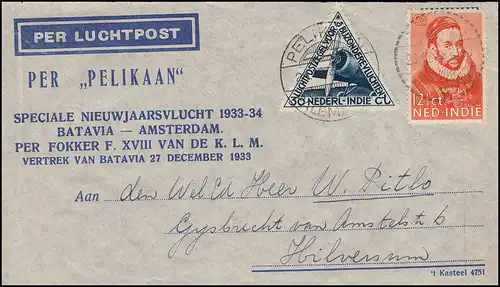 PER LUCHTPOST
PER „PELIKAAN"
SPECIALE NIEUWJAARSVLUCHT 1933-34
BATAVIA — AMSTERDAM.
PER FOKKER F. XVIII VAN DE K. L. M.
VERTREK VAN BATAVIA 27 DECEMBER 1933
LUCHTPOSTZEGEL VOOR BIJZONDERE VLUCHTEN
30 NEDERL-INDIE CT
12½ CT.
NED-INDIE
Aan den Wel Ed Heer W. Pitlo
Gysbrecht van Amstelstr 6
Hilversum
't Kasteel 4751